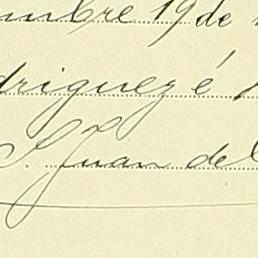 mbre 19 de
driguez é
S. Juan del